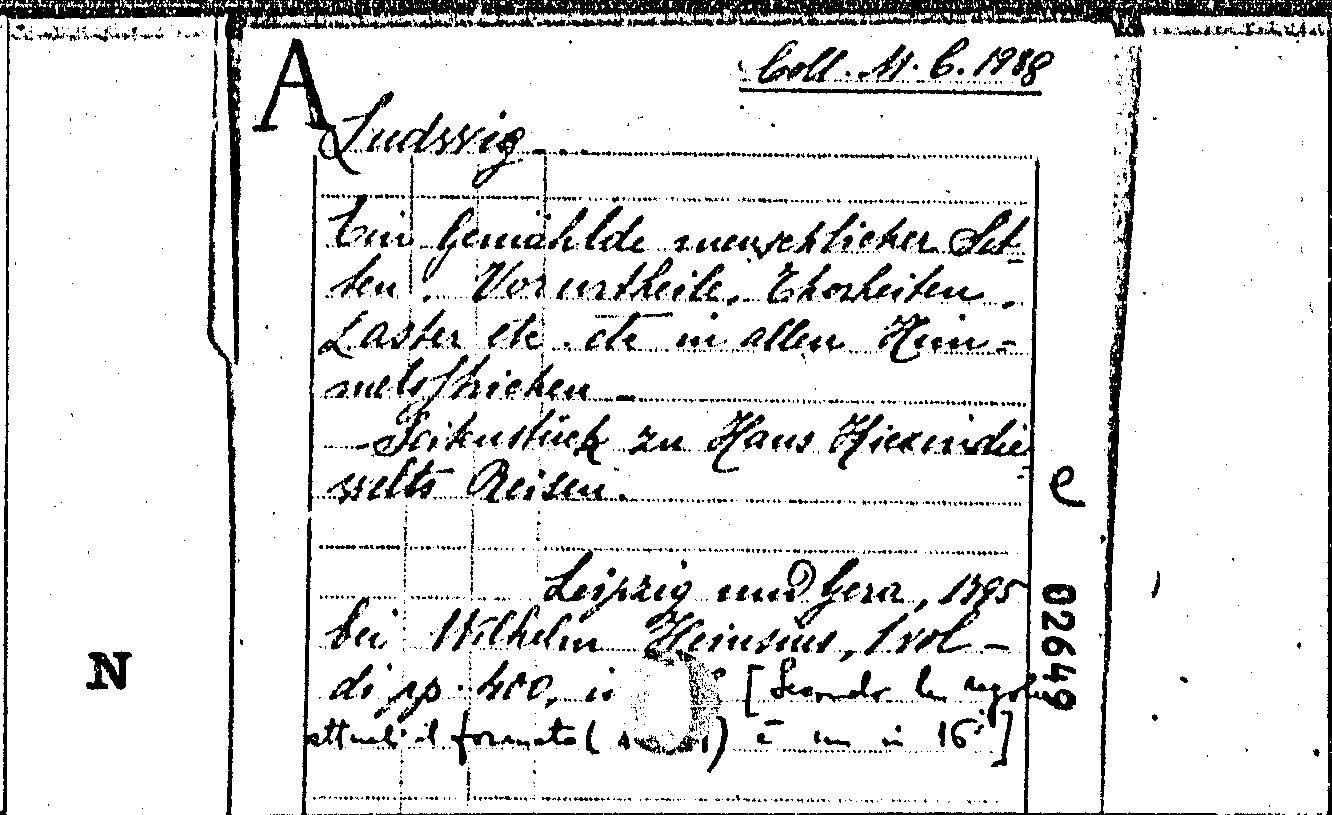 A
Coll. M. C. 1988
Ludwig
Ein Gemählde menschlicher Sit-
ten, Vorurtheile, Thorheiten,
Laster etc. etc in allen Him-
melsstrichen
- Seitenstück zu Hans Kiekindie-
welts Reisen.
e
Leipzig und Gera, 1795
bei Wilhelm Heinsius, 1 vol -
di pp. 400, in [Secondo le regole
attuali il formato ( ) è un in 16°]
02649
N